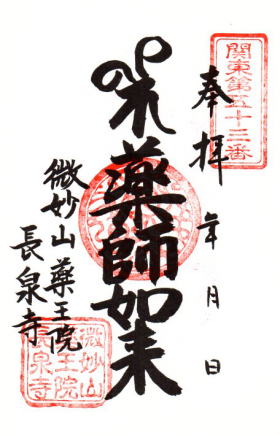 関東第五十三番
奉拝 年 月 日
薬師如来
微妙山 薬王院
長泉寺
微妙山
王院
長泉寺